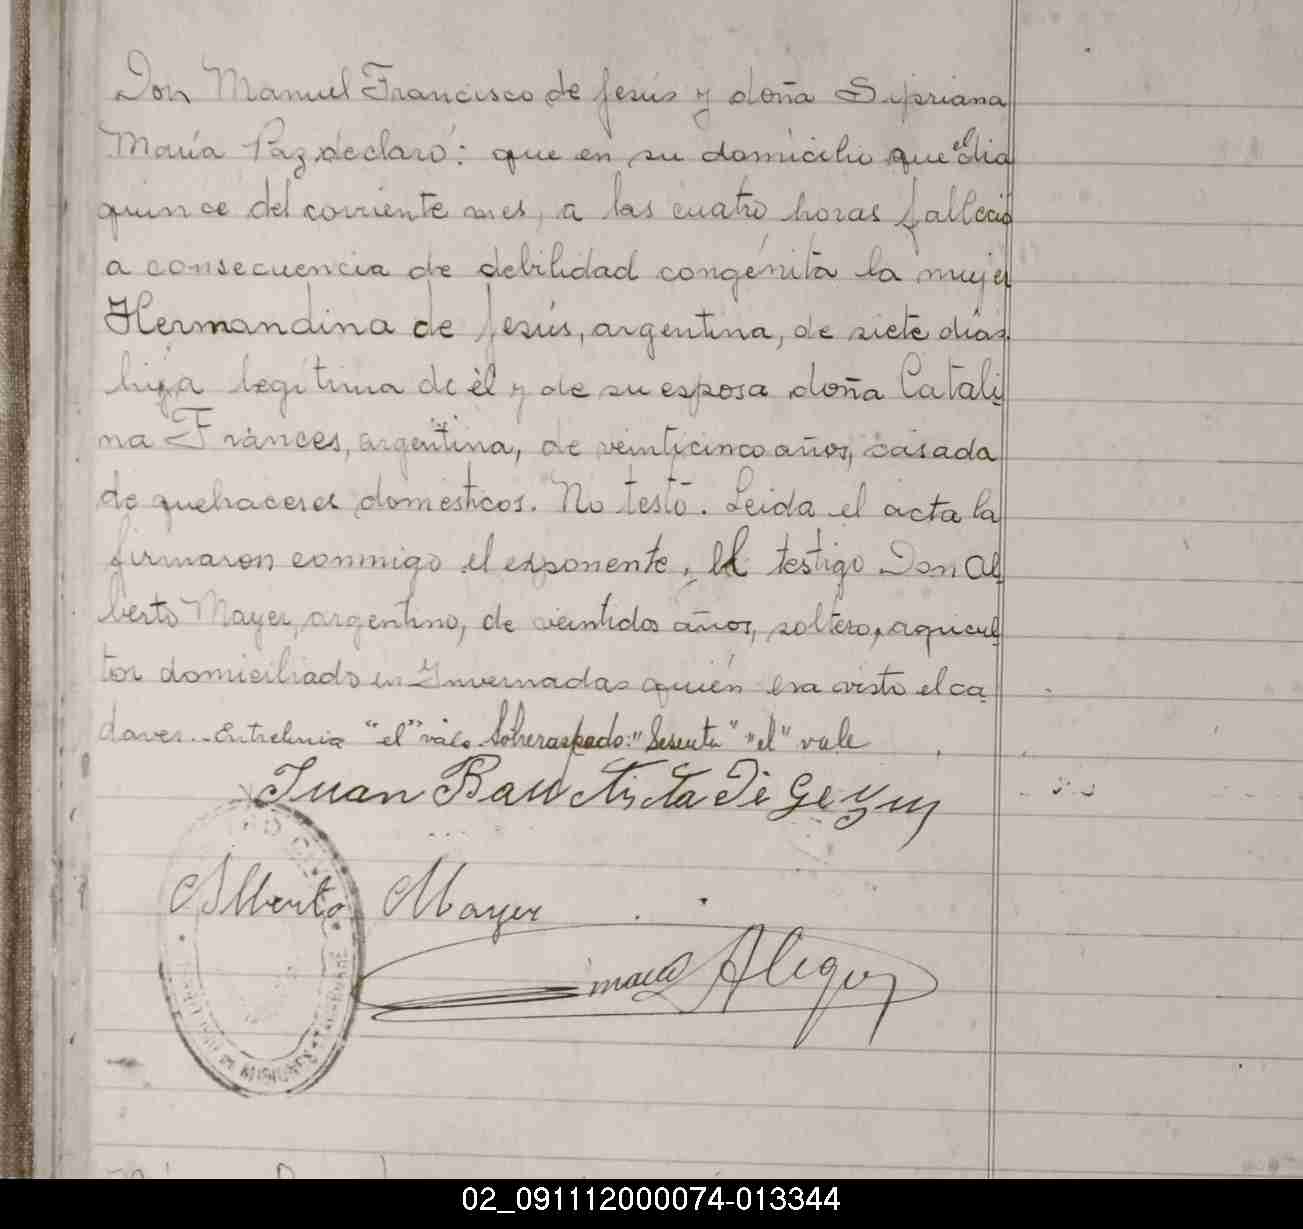 Don Manuel Francisco de Jesús y doña Sipriana
María Paz, declaró: que en su domicilio que el dia
quince del corriente mes, a las cuatro horas falleció
a consecuencia de debilidad congénita la mujer
Hermandina de Jesús, argentina, de siete días
hija legítima de él y de su esposa doña Catali
na Frances, argentina, de veinticinco años, casada
de quehaceres domésticos. No testó. Leida el acta la
firmaron conmigo el exponente, el testigo Don Al
berto Mayer, argentino, de veintidos años, soltero, agricul
tor domiciliado en Invernadas quién era visto el ca
daver. Entrelinia "el" vale. Sobreraspado: "Sesenta" "el" vale
Juan Bautista Di Gezus
Alberto Mayer
02_091112000074-013344